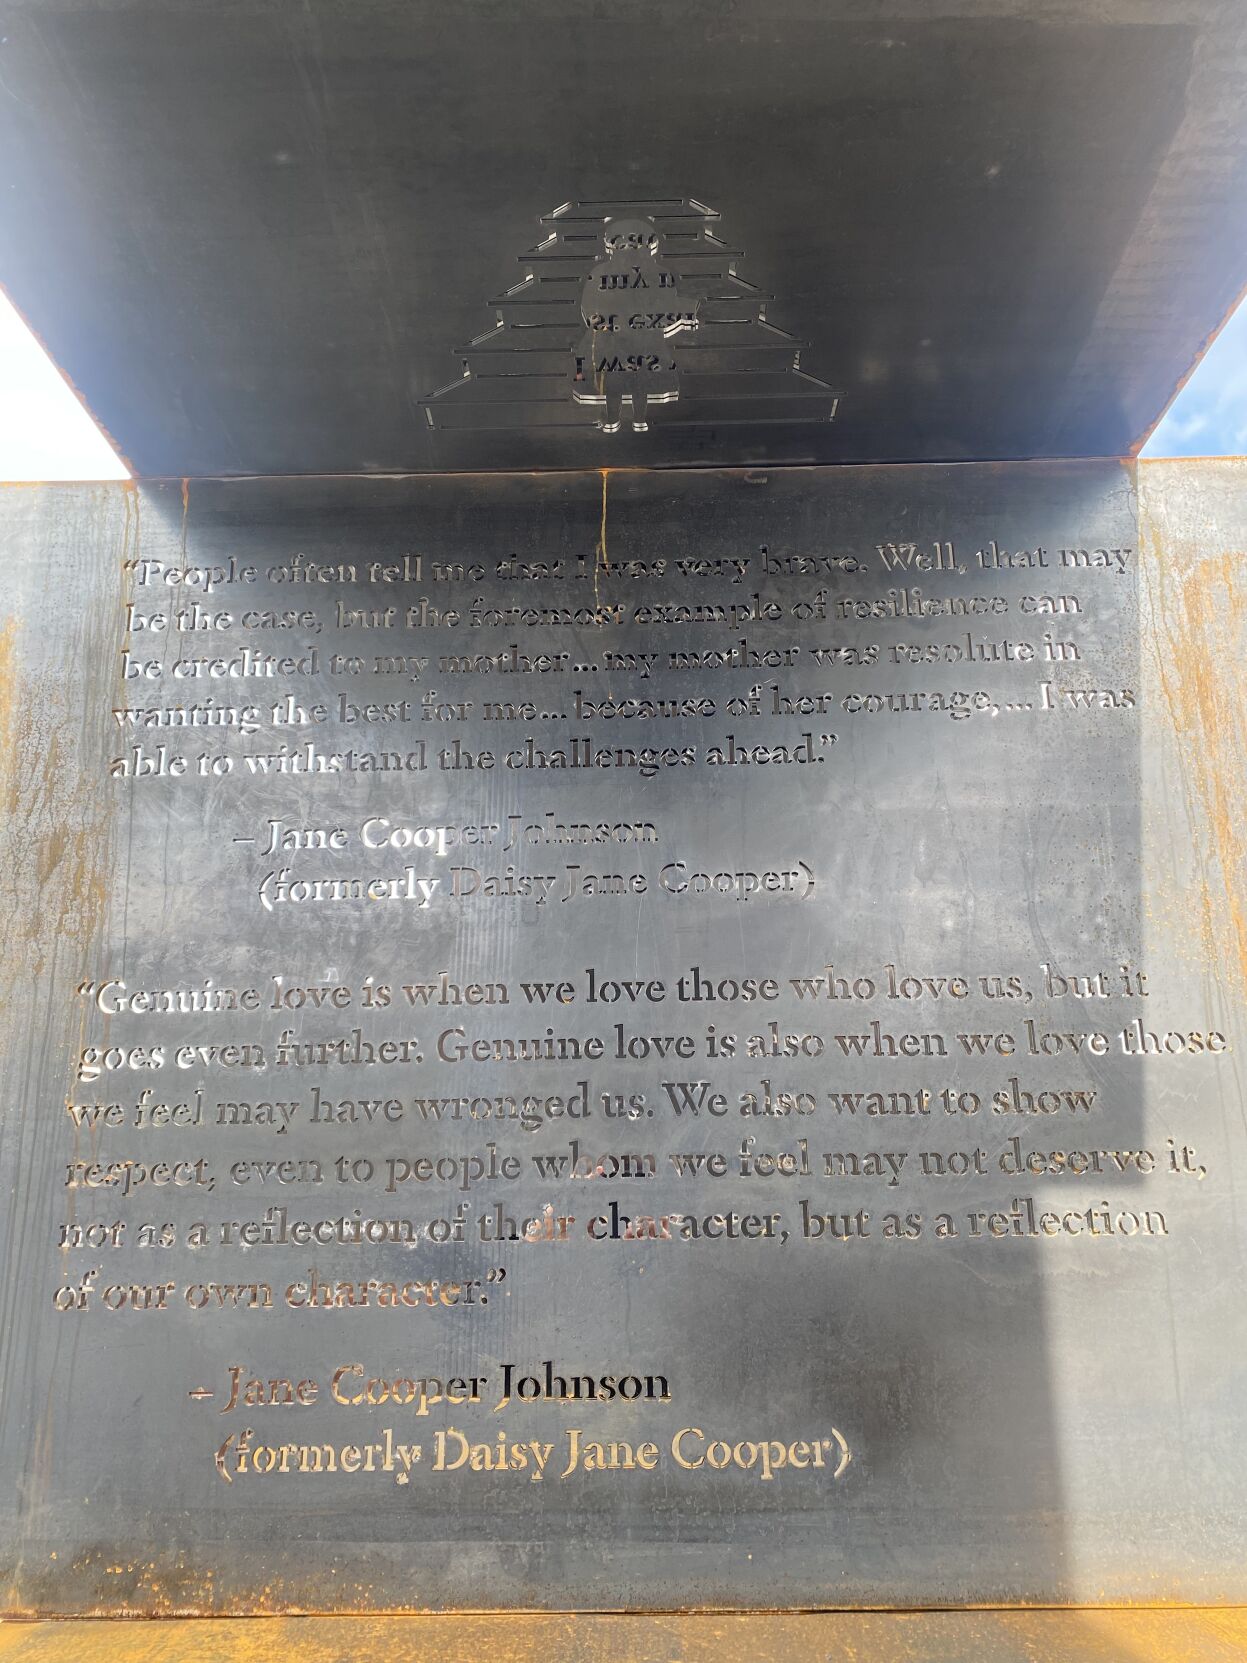 “People often tell me that I was very brave. Well, that may
be the case, but the foremost example of resilience can
be credited to my mother... my mother was resolute in
wanting the best for me... because of her courage,... I was
able to withstand the challenges ahead.”
– Jane Cooper Johnson
(formerly Daisy Jane Cooper)
“Genuine love is when we love those who love us, but it
goes even further. Genuine love is also when we love those
we feel may have wronged us. We also want to show
respect, even to people whom we feel may not deserve it,
not as a reflection of their character, but as a reflection
of our own character.”
– Jane Cooper Johnson
(formerly Daisy Jane Cooper)